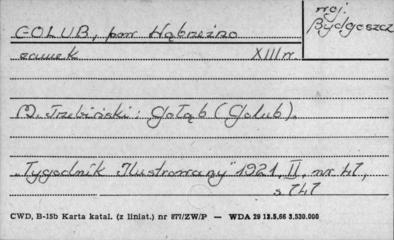 woj.
Bydgoszcz
GOLUB, pow. Wąbrzeźno
zamek XIII w.
M. Trzebiński: Gołąb (Golub).
„Tygodnik Ilustrowany" 1921, II, nr. 47,
s. 747
CWD, B-15b Karta katal. (z liniat.) nr 877/ZW/P — WDA 29 13.5.66 3.530.000